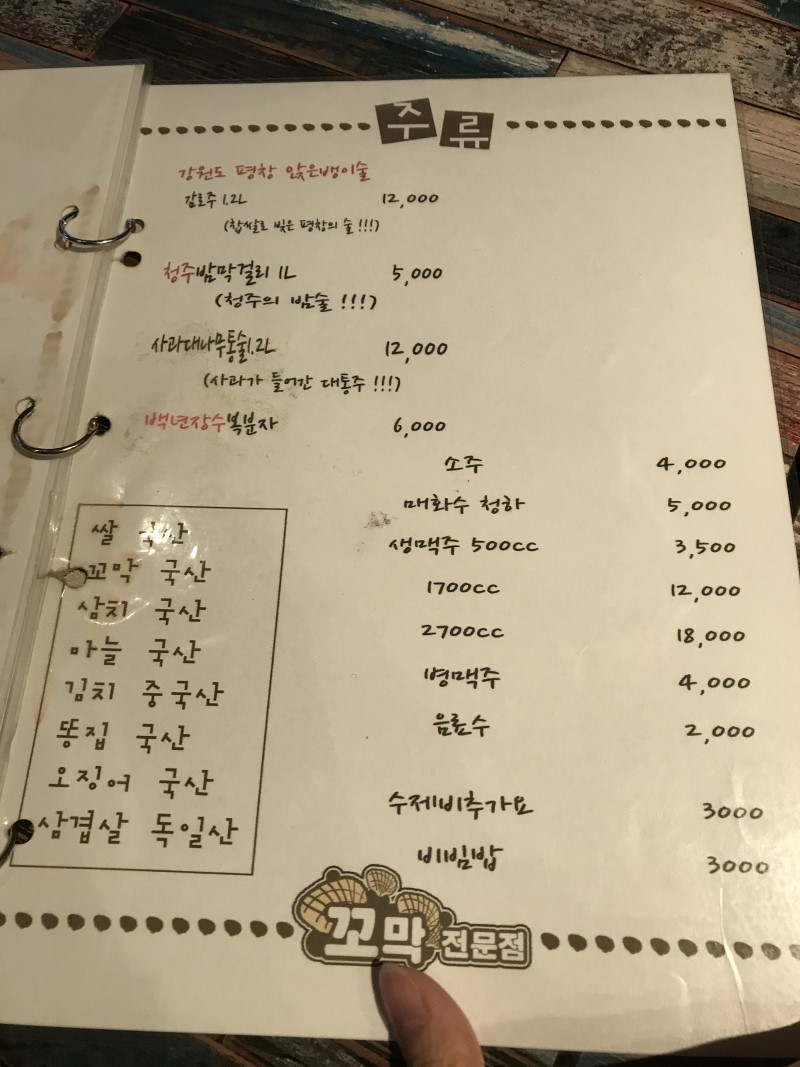 주류
강원도 평창 앉은뱅이술
감로주 1.2L 12,000
(찹쌀로 빚은 평창의 술 !!!)
청주밤막걸리 1L 5,000
(청주의 밤술 !!!)
사과대나무통술1.2L 12,000
(사과가 들어간 대통주 !!!)
백년장수복분자 6,000
소주 4,000
매화수 청하 5,000
생맥주 500cc 3,500
1700cc 12,000
2700cc 18,000
병맥주 4,000
음료수 2,000
수제비추가요 3000
비빔밥 3000
쌀 국산
꼬막 국산
삼치 국산
마늘 국산
김치 중국산
똥집 국산
오징어 국산
삼겹살 독일산
꼬막 전문점